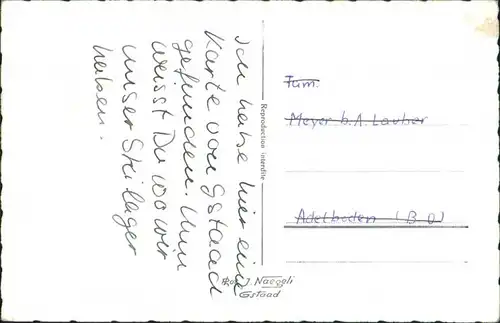 Ich habe hier eine
Karte von Gstaad
gefunden. Nun
weisst Du wo wir
unser Skilager
haben.
Reproduction interdite
Fam.
Meyer b. A. Lauber
Adelboden (B.O)
J. Naegeli
Gstaad